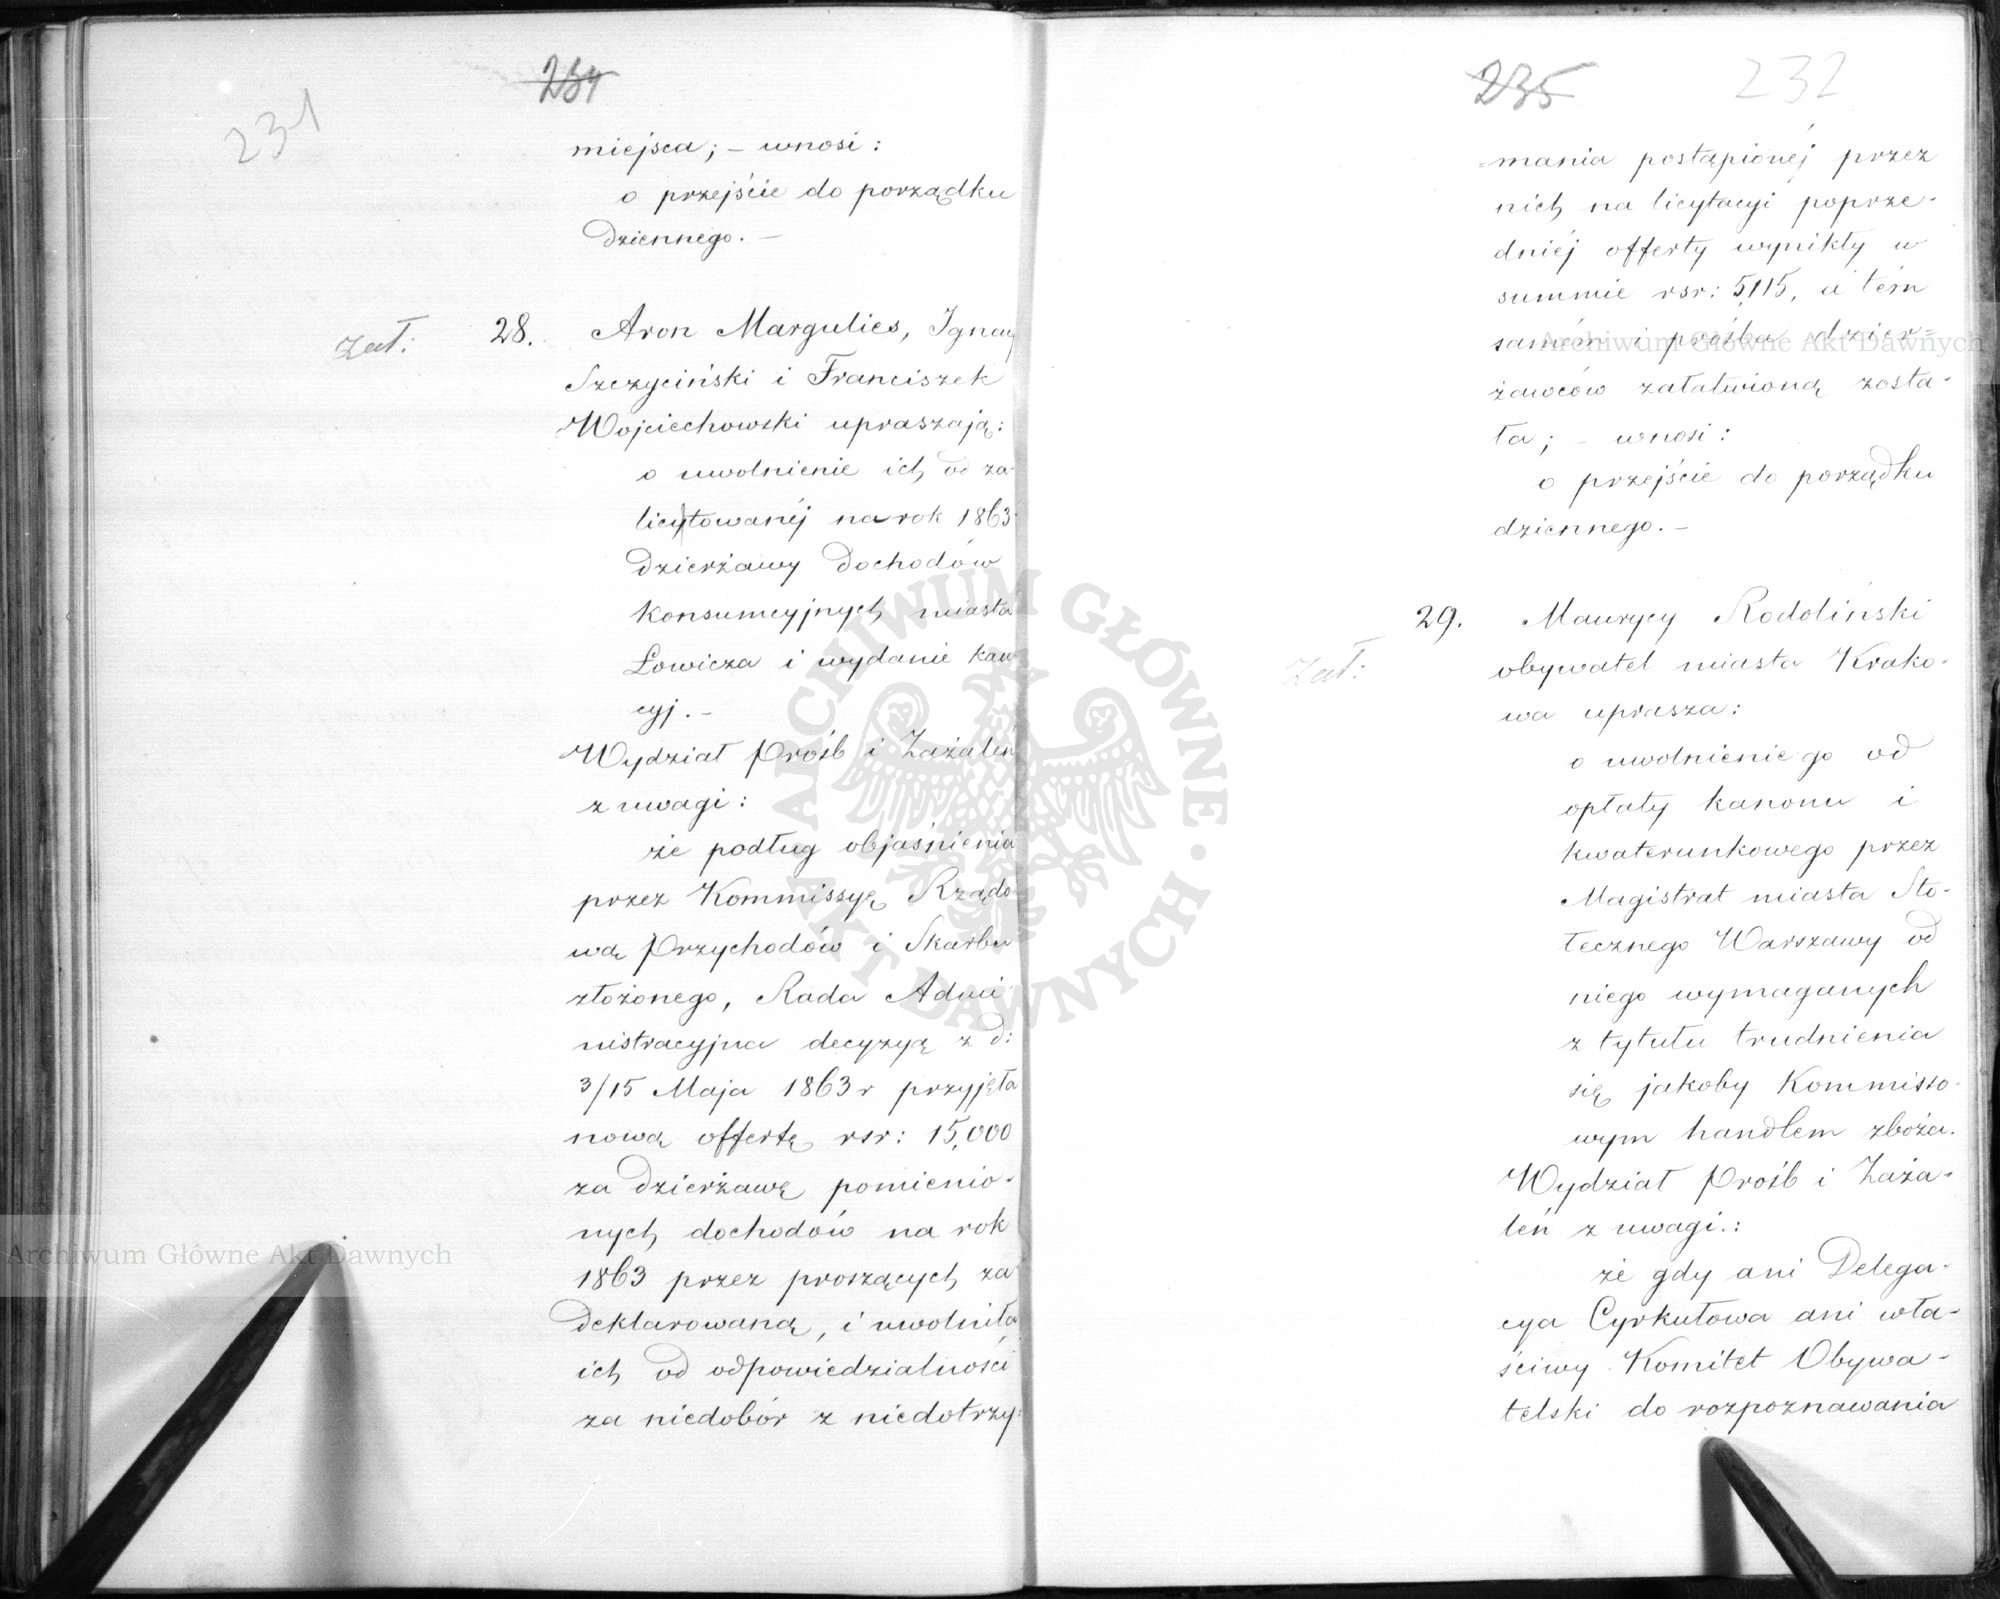 234
231
miejsca; – wnosi:
o przejście do porządku
dziennego. –
Zał:
28. Aron Margulies, Ignacy
Szczyciński i Franciszek
Wojciechowski upraszają:
o uwolnienie ich od za
licytowanéj na rok 1863
dzierżawy dochodów
konsumcyjnych miasta
Łowicza i wydanie kau-
cyj. –
Wydział Próśb i Zażaleń
z uwagi:
że podług objaśnienia
przez Kommissyę Rządo-
wą Przychodów i Skarbu
złożonego, Rada Admi
nistracyjna decyzyą z d:
3/15 Maja 1863 r przyjęła
nową offertę rsr: 15,000
za dzierżawę pomienio-
nych dochodów na rok
1863 przez proszących za
deklarowaną, i uwolniła
ich od odpowiedzialności
za niedobór z niedotrzy-
235
232
=mania postąpionéj przez
nich na licytacyi poprze-
dniéj offerty wynikły w
summie rsr: 5,115, a tém
samém i prośba dzier=
żawców załatwioną zosta-
ła; – wnosi:
o przejście do porządku
dziennego. –
29. Maurycy Rodoliński
Zał:
obywatel miasta Krako-
wa uprasza:
o uwolnienie go od
opłaty kanonu i
kwaterunkowego przez
Magistrat miasta Sto-
łecznego Warszawy od
niego wymaganych
z tytułu trudnienia
się jakoby Kommisso-
wym handlem zboża.
Wydział Próśb i Zaża-
leń z uwagi.:
że gdy ani Delega-
cya Cyrkułowa ani wła-
ściwy Komitet Obywa-
telski do rozpoznawania
Archiwum Główne Akt Dawnych
Archiwum Główne Akt Dawnych
ARCHIWUM GŁÓWNE · AKT DAWNYCH ·